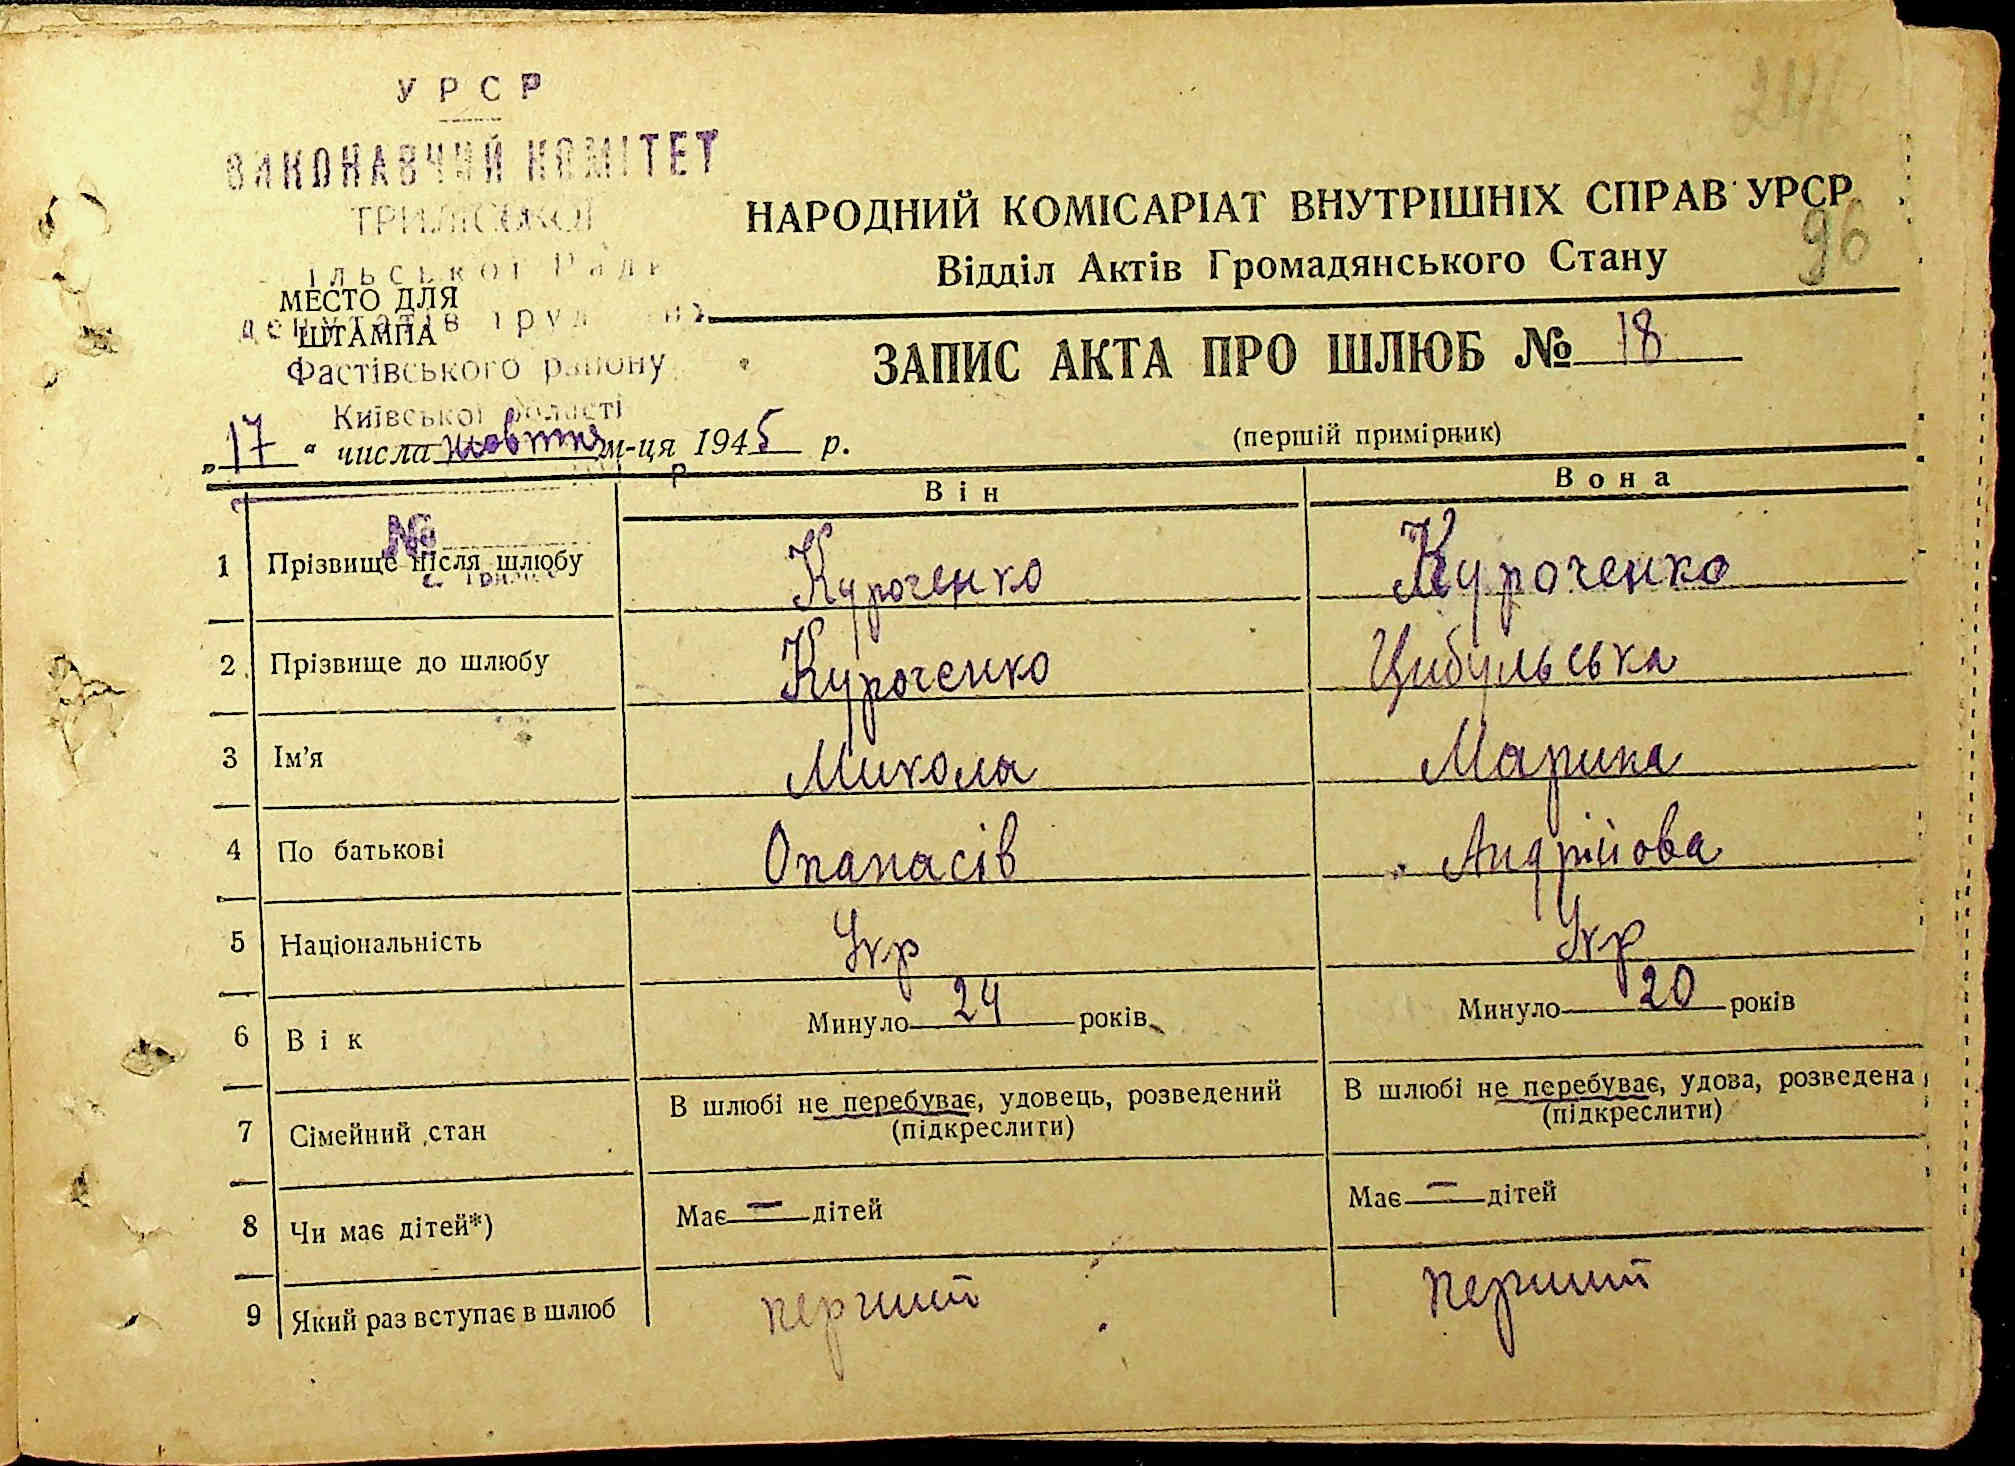 УРСР
ВИКОНАВЧИЙ КОМІТЕТ
ТРИЛІСЬКОЇ
ільської Ради
МЕСТО ДЛЯ
депутатів
ШТАМПА
Фастівського району
Київської області
НАРОДНИЙ КОМІСАРІАТ ВНУТРІШНІХ СПРАВ УРСР
96
Відділ Актів Громадянського Стану
ЗАПИС АКТА ПРО ШЛЮБ № 18
„17“ числа жовтня м-ця 1945 р.
(першій примірник)
Він Вона
№
1 Прізвище після шлюбу Куроченко Куроченко
2 Прізвище до шлюбу Куроченко Цибульська
3 Ім'я Микола Марина
4 По батькові Опанасів Андрійова
5 Національність Укр Укр
6 Вік Минуло 24 років Минуло 20 років
7 Сімейний стан В шлюбі не перебуває, удовець, розведений (підкреслити) В шлюбі не перебуває, удова, розведена (підкреслити)
8 Чи має дітей*) Має — дітей Має — дітей
9 Який раз вступає в шлюб перший перший